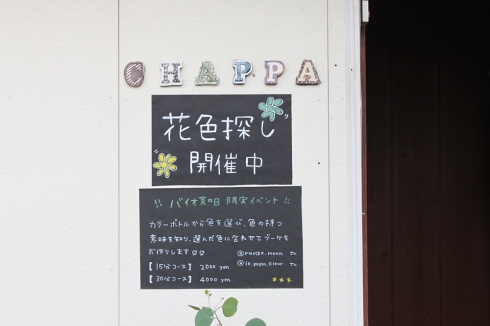 CHAPPA
花色探し
開催中
!! バイオ茶の日 限定イベント !!
カラーボトルから色を選び、色の持つ
意味を知り、選んだ色に合わせてブーケを
お作りします
【15分コース】 2000 yen
【30分コース】 4000 yen